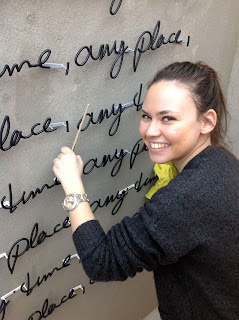 time, any place,
place, any t
time any pl
place, any
time
any time,
place,